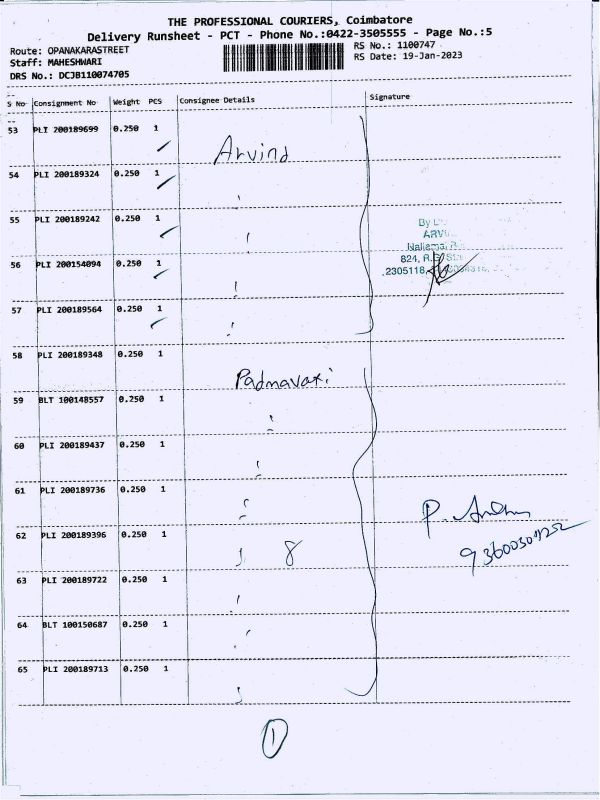 THE PROFESSIONAL COURIERS, Coimbatore
Delivery Runsheet - PCT - Phone No.:0422-3505555 - Page No.:5
Route: OPANAKARASTREET
RS No.: 1100747
Staff: MAHESHWARI
RS Date: 19-Jan-2023
DRS No.: DCJB110074705
S No Consignment No Weight PCS Consignee Details Signature
53 PLI 200189699 0.250 1
Arvind
54 PLI 200189324 0.250 1
55 PLI 200189242 0.250 1
ARV
56 PLI 200154094 0.250 1
824, R.G. St
2305118,
57 PLI 200189564 0.250 1
58 PLI 200189348 0.250 1
Padmavati
59 BLT 100148557 0.250 1
60 PLI 200189437 0.250 1
61 PLI 200189736 0.250 1
P.
62 PLI 200189396 0.250 1
8
63 PLI 200189722 0.250 1
64 BLT 100150687 0.250 1
65 PLI 200189713 0.250 1
1